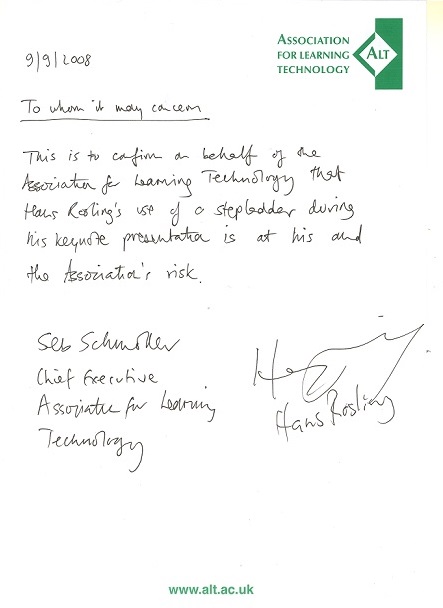 ASSOCIATION
FOR LEARNING
TECHNOLOGY
ALT
9/9/2008
To whom it may concern
This is to confirm on behalf of the
Association for Learning Technology that
Hans Rosling's use of a stepladder during
his keynote presentation is at his and
the Association's risk.
Seb Schmoller
Chief Executive
Association for Learning
Technology
Hans Rosling
www.alt.ac.uk